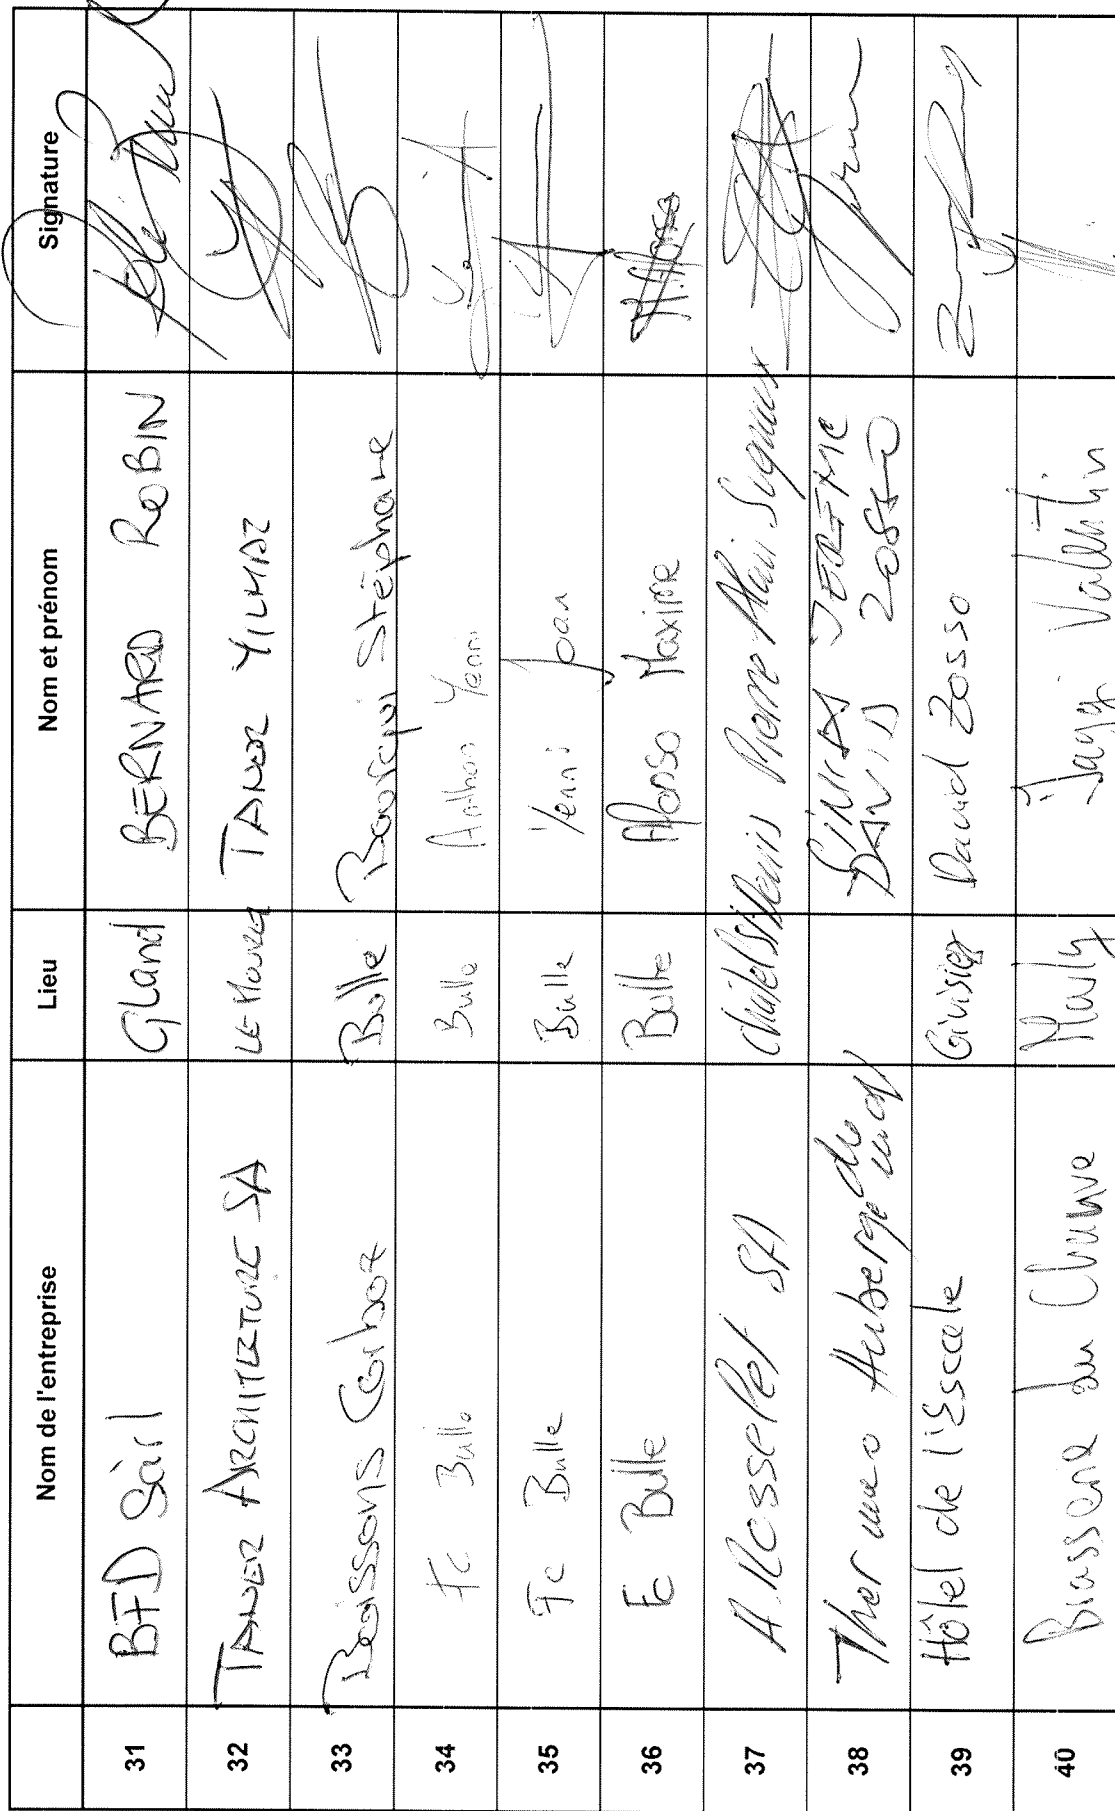 Nom de l'entreprise Lieu Nom et prénom Signature
31 BFD Sàrl Gland BERNARD ROBIN
32 TANER ARCHITECTURE SA LE MOURET TANER YILMAZ
33 Boissons Corboz Bulle Bourqui Stéphane
34 Fc Bulle Bulle Anthon Yenni
35 Fc Bulle Bulle Yenni Joan
36 Fc Bulle Bulle Afonso Maxime M. Afonso
37 A Rosselet SA Châtel St Denis Pierre Alain
38 Auberge du JEREMIE
DAVID ZOSSO
39 Hôtel de l'Escale Givisiez David Zosso
40 Brasserie du Chauve Marly Jaggi Valentin